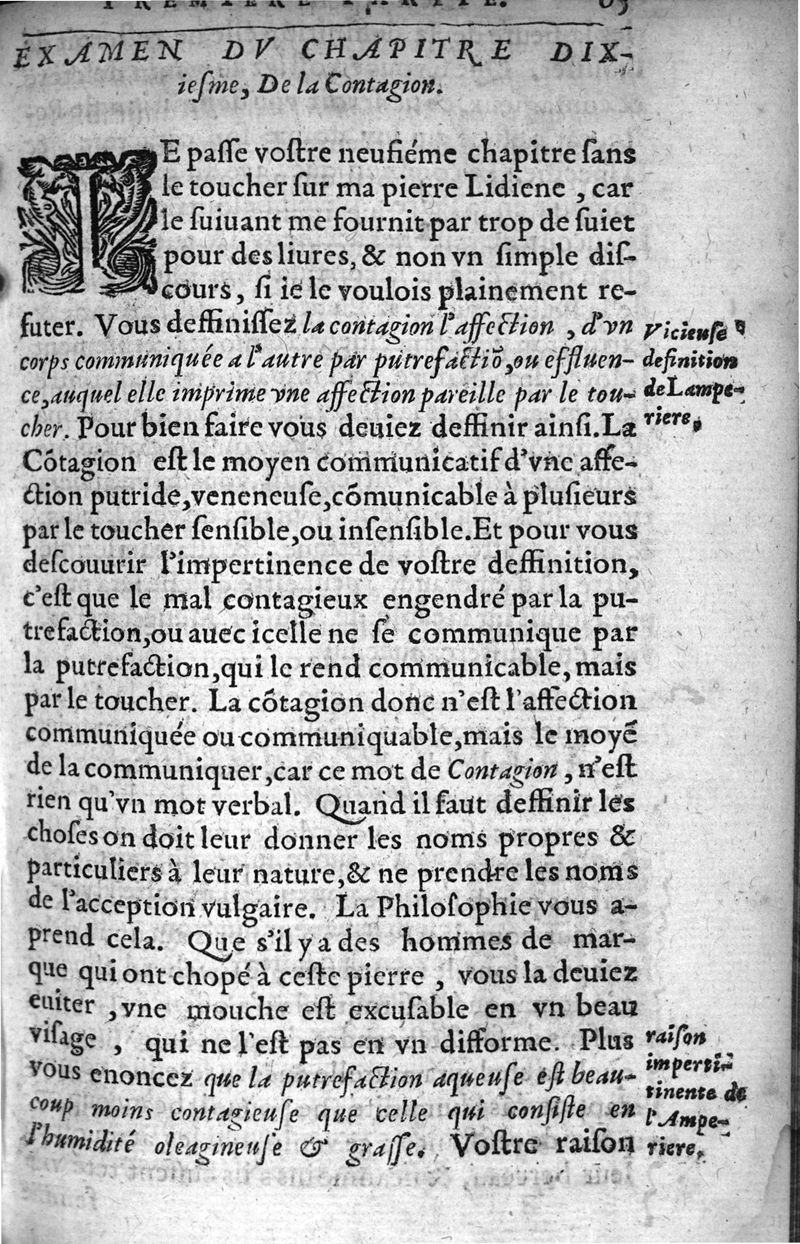 PREMIERE PARTIE. 65
EXAMEN DV CHAPITRE DIX-
ieſme, De la Contagion.
IE paſſe voſtre neufiéme chapitre ſans
le toucher ſur ma pierre Lidiene , car
le ſuiuant me fournit par trop de ſuiet
pour des liures, & non vn ſimple diſ-
cours, ſi ie le voulois plainement re-
futer. Vous deffiniſſez la contagion l'affection , d'vn
corps communiquée a l'autre par putrefactiõ, ou effluen-
ce, auquel elle imprime vne affection pareille par le tou-
cher. Pour bien faire vous deuiez deffinir ainſi. La
Cõtagion eſt le moyen communicatif d'vne affe-
ction putride, veneneuſe, cõmunicable à pluſieurs
par le toucher ſenſible, ou inſenſible. Et pour vous
deſcouurir l'impertinence de voſtre deffinition,
c'eſt que le mal contagieux engendré par la pu-
trefaction, ou auec icelle ne ſe communique par
la putrefaction, qui le rend communicable, mais
par le toucher. La cõtagion donc n'eſt l'affection
communiquée ou communiquable, mais le moyẽ
de la communiquer, car ce mot de Contagion , n'eſt
rien qu'vn mot verbal. Quand il faut deffinir les
choſes on doit leur donner les noms propres &
particuliers à leur nature, & ne prendre les noms
de l'acception vulgaire. La Philoſophie vous a-
prend cela. Que s'il y a des hommes de mar-
que qui ont chopé à ceſte pierre , vous la deuiez
euiter , vne mouche eſt excuſable en vn beau
viſage , qui ne l'eſt pas en vn difforme. Plus
vous enoncez que la putrefaction aqueuſe eſt beau-
coup moins contagieuſe que celle qui conſiſte en
l'humidité oleagineuſe & graſſe. Voſtre raiſon
Vicieuſe
definition
de Lampe-
riere,
raiſon
imperti-
tinente de
l'Ampe-
riere,